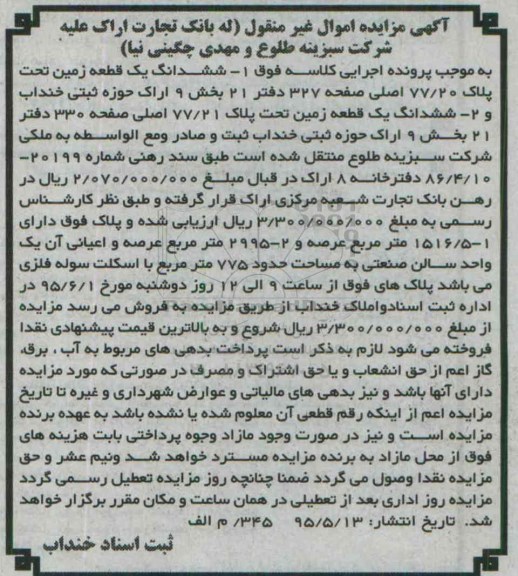 آگهی مزایده اموال غیر منقول (له بانک تجارت اراک علیه
شرکت سبزینه طلوع و مهدی چگینی نیا)
به موجب پرونده اجرایی کلاسه فوق ۱- ششدانگ یک قطعه زمین تحت
پلاک ۷۷/۲۰ اصلی صفحه ۳۲۷ دفتر ۲۱ بخش ۹ اراک حوزه ثبتی خنداب
و ۲- ششدانگ یک قطعه زمین تحت پلاک ۷۷/۲۱ اصلی صفحه ۳۳۰ دفتر
۲۱ بخش ۹ اراک حوزه ثبتی خنداب ثبت و صادر ومع الواسطه به ملکی
شرکت سبزینه طلوع منتقل شده است طبق سند رهنی شماره ۲۰۱۹۹-
۸۶/۴/۱۰ دفترخانه ۸ اراک در قبال مبلغ ۲/۰۷۰/۰۰۰/۰۰۰ ریال در
رهن بانک تجارت شعبه مرکزی اراک قرار گرفته و طبق نظر کارشناس
رسمی به مبلغ ۳/۳۰۰/۰۰۰/۰۰۰ ریال ارزیابی شده و پلاک فوق دارای
۱-۱۵۱۶/۵ متر مربع عرصه و ۲-۲۹۹۵ متر مربع عرصه و اعیانی آن یک
واحد سالن صنعتی به مساحت حدود ۷۷۵ متر مربع با اسکلت سوله فلزی
می باشد پلاک های فوق از ساعت ۹ الی ۱۲ روز دوشنبه مورخ ۹۵/۶/۱ در
اداره ثبت اسنادواملاک خنداب از طریق مزایده به فروش می رسد مزایده
از مبلغ ۳/۳۰۰/۰۰۰/۰۰۰ ریال شروع و به بالاترین قیمت پیشنهادی نقدا
فروخته می شود لازم به ذکر است پرداخت بدهی های مربوط به آب ، برق،
گاز اعم از حق انشعاب و یا حق اشتراک و مصرف در صورتی که مورد مزایده
دارای آنها باشد و نیز بدهی های مالیاتی و عوارض شهرداری و غیره تا تاریخ
مزایده اعم از اینکه رقم قطعی آن معلوم شده یا نشده باشد به عهده برنده
مزایده است و نیز در صورت وجود مازاد وجوه پرداختی بابت هزینه های
فوق از محل مازاد به برنده مزایده مسترد خواهد شد ونیم عشر و حق
مزایده نقدا وصول می گردد ضمنا چنانچه روز مزایده تعطیل رسمی گردد
مزایده روز اداری بعد از تعطیلی در همان ساعت و مکان مقرر برگزار خواهد
شد. تاریخ انتشار: ۹۵/۵/۱۳ ۳۴۵/ م الف
ثبت اسناد خنداب